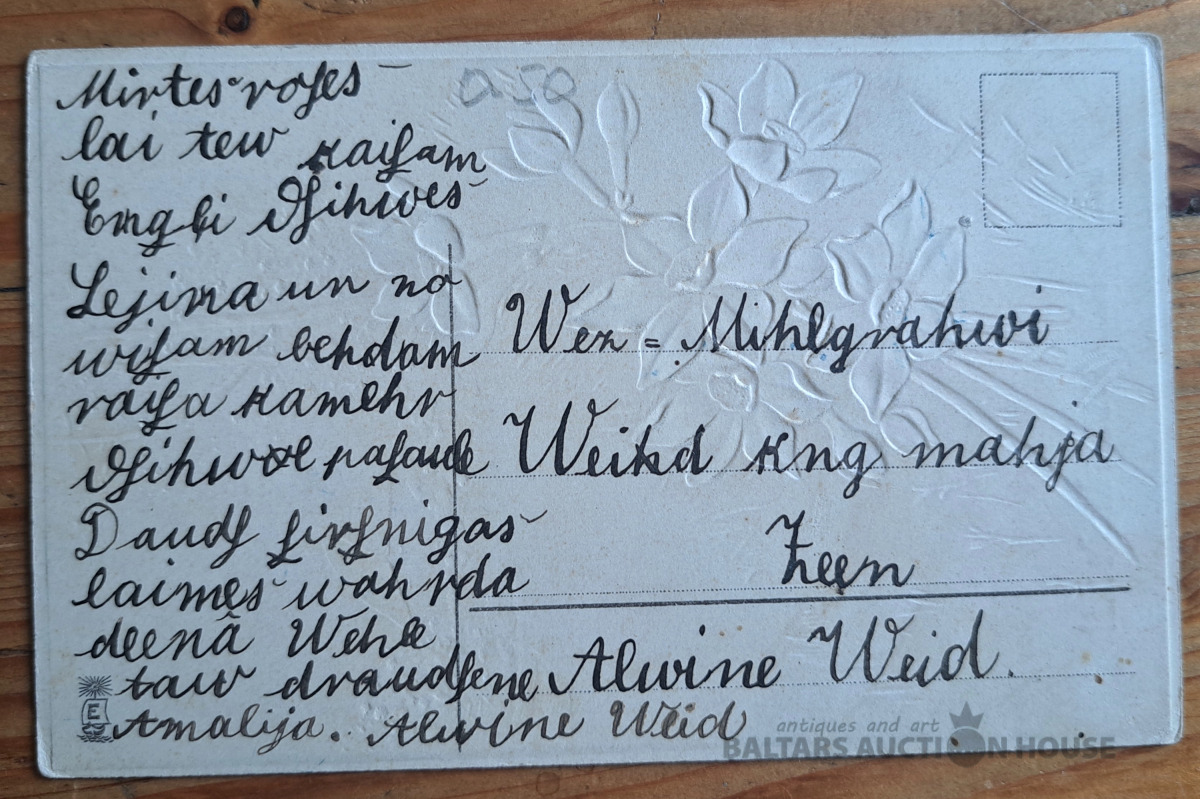 Mirtes roſes
lai tew kaiſam
Engļi Dſihwes
Lejina un no
wiſam behdam
raiſa kamehr
Dſihwoє paſaule
Daudſ ſirſnigas
laimes wahrda
deenâ Wehle
taw draudſene
Amalija. Alwine Weid
0.50
Wez = Mihlgrahwi
Weihd kng mahja
Zeen
Alwine Weid.
E
antiques and art
BALTARS AUCTION HOUSE